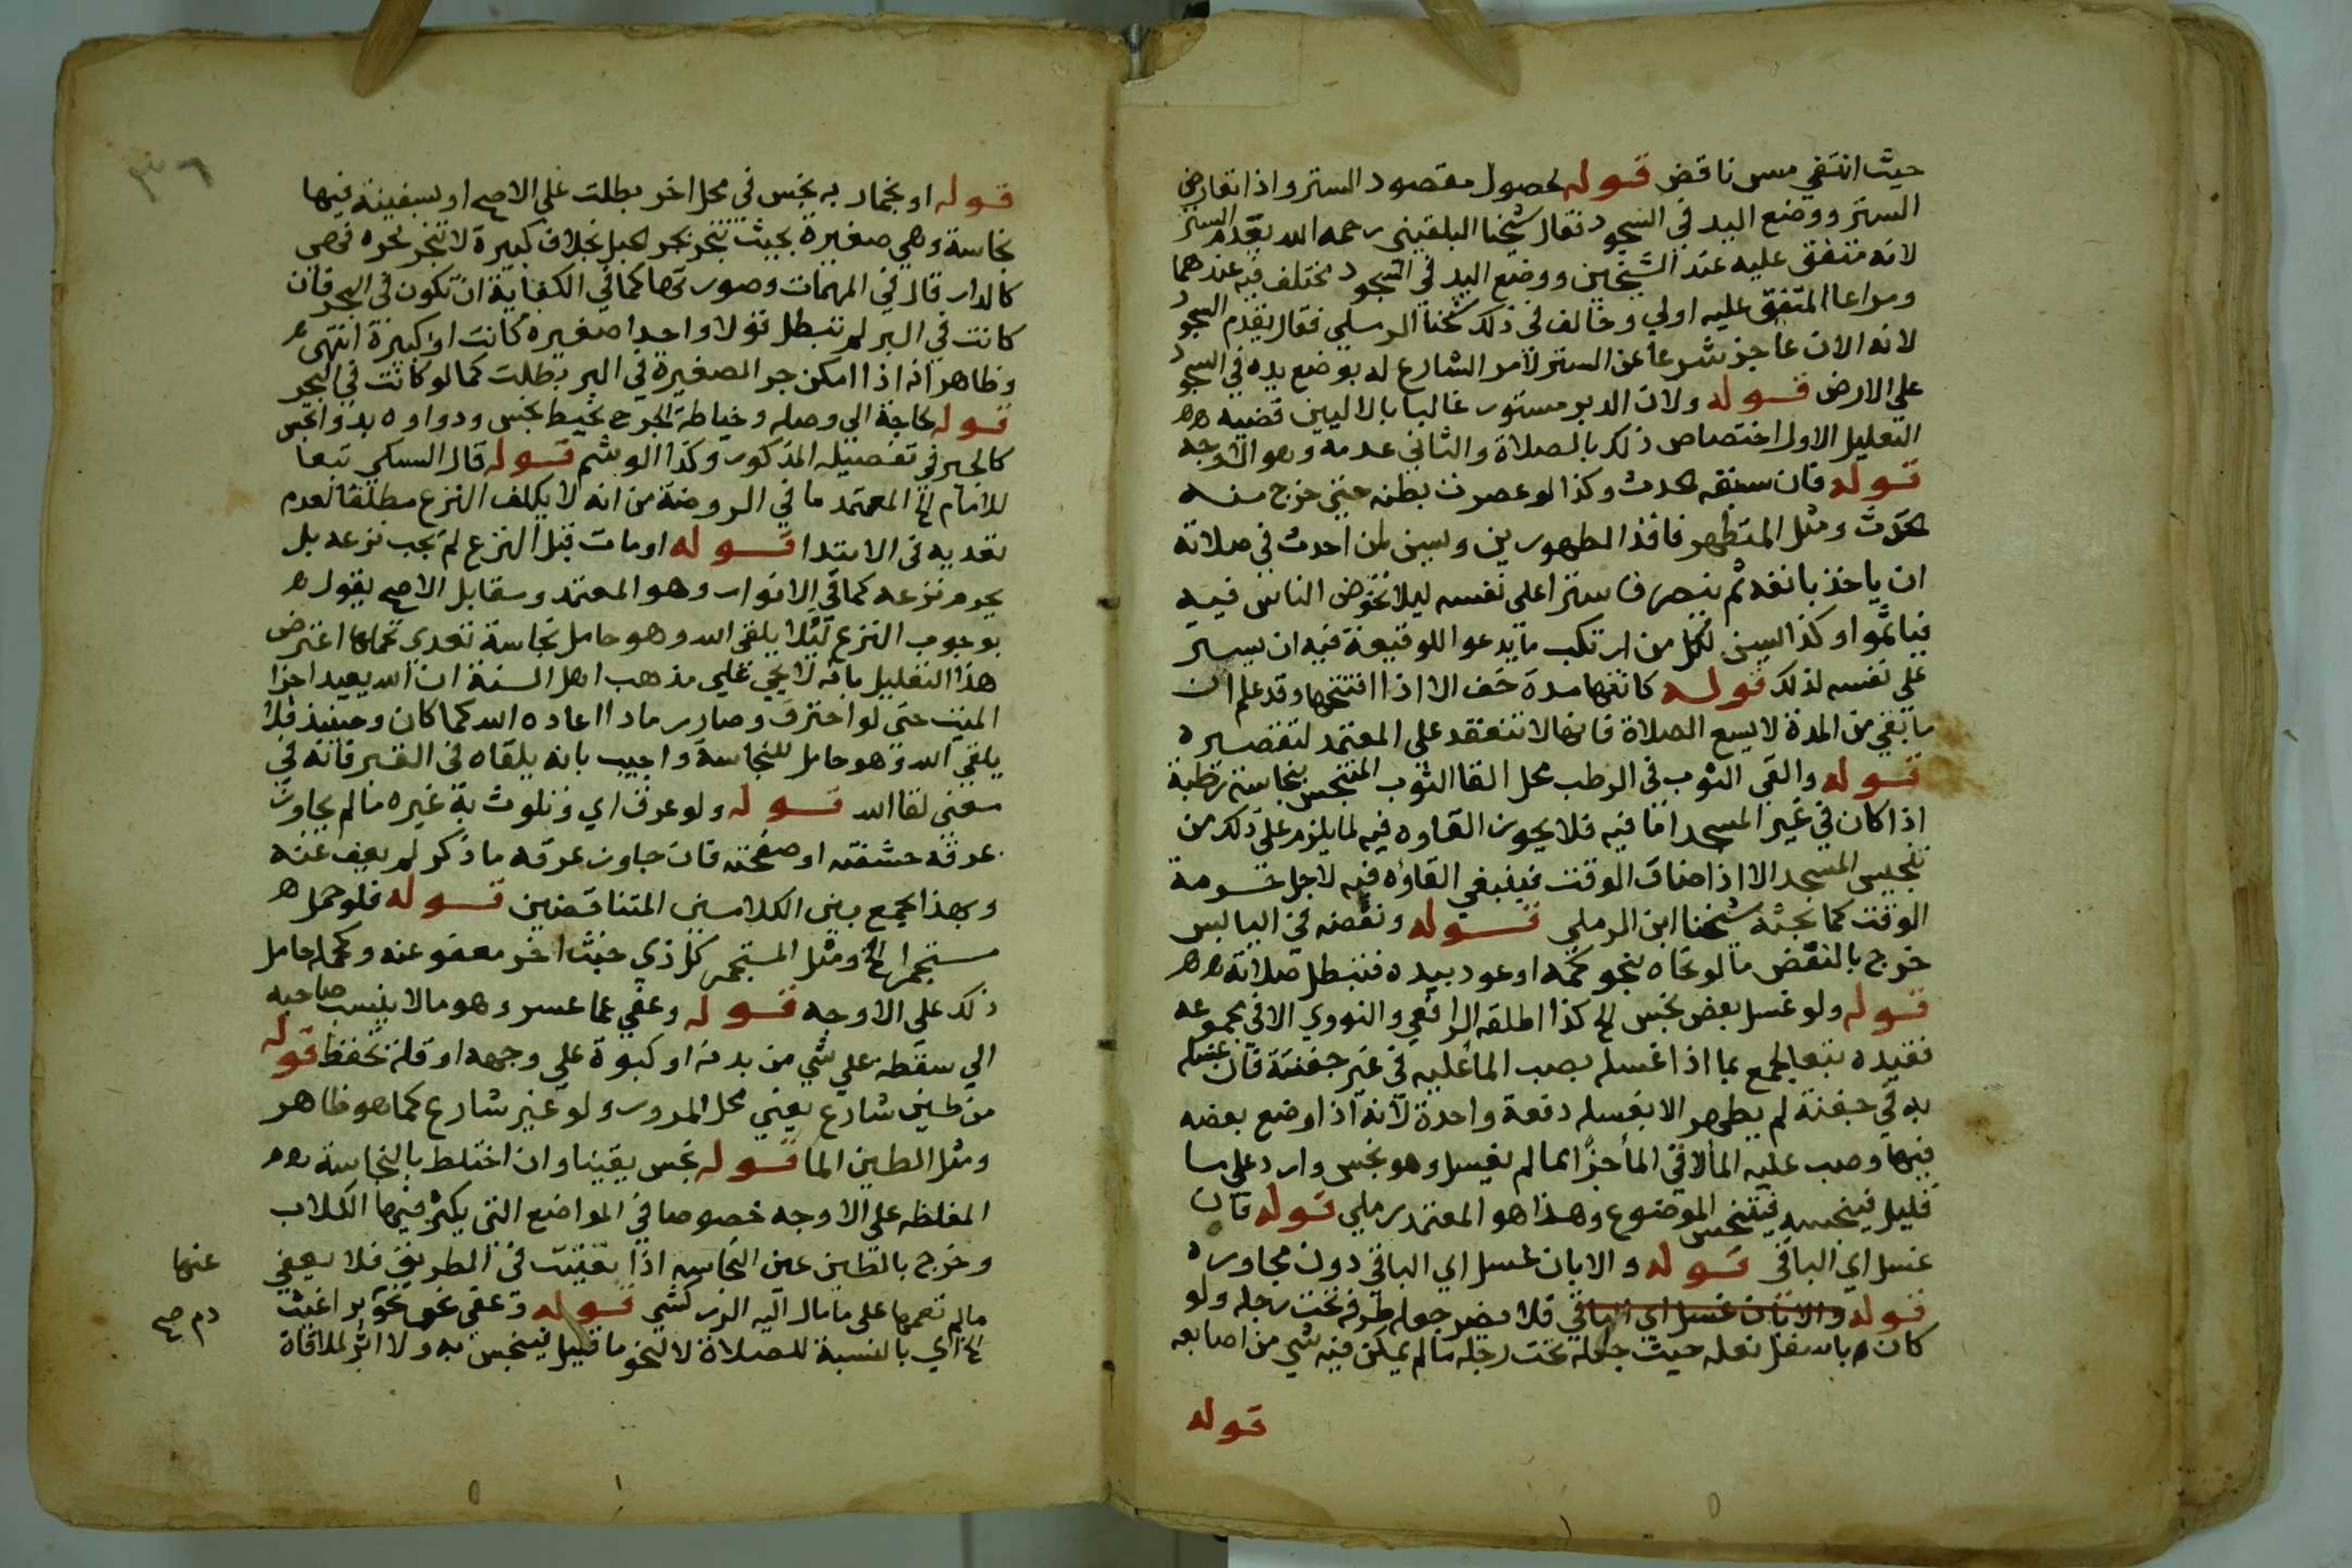 حيث انتفي مس ناقض قوله لحصول مقصود الستر واذا تعارض
الستر ووضع اليد في السجود فقال شيخنا البلقيني رحمه الله يقدم الستر
لانه متفق عليه عند الشيخين ووضع اليد في السجود مختلف فيه عندهما
ومراعا المتفق عليه اولي وخالف في ذلك شيخنا الرملي فقال يقدم السجود
لانه الان عاجز شرعا عن الستر لامر الشارع له بوضع يده في السجود
علي الارض قوله ولان الدبر مستور غالبا بالاليين قضيه
التعليل الاول اختصاص ذلك بالصلاة والثاني عدمه وهو الاوجه
قوله فان سبقه لحدث وكذا لو عصرت بطنه حتي خرج منه
لحدث ومثل المتطهر فاقد الطهورين ويسن لمن احدث في صلاته
ان ياخذ بانفه ثم ينصرف سترا على نفسه ليلا تخوض الناس فيه
فياثموا وكذا يسن لكل من ارتكب ما يدعوا للوقيعة فيه ان يستر
علي نفسه لذلك قوله كانتها مدة خف الا اذا افتتحها وقد علم ان
ما بقي من المدة لا يسع الصلاة فانها لا تنعقد على المعتمد لتقصيره
قوله والقي الثوب في الرطب محل القا الثوب المتنجس بنجاسة رطبة
اذا كان في غير المسجد اما فيه فلا يجوز القاوه فيه لما يلزم على ذلك من
تنجيس المسجد الا اذا ضاق الوقت فينبغي القاؤه فيه لاجل حرمة
الوقت كما بحثه شيخنا ابن الرملي قوله ونفضه في اليابس
خرج بالنفض ما لو نحاه بنحو كمه او عود بيده فتبطل صلاته
قوله ولو غسل بعض نجس الخ كذا اطلقه الرافعي والنووي الا في مجموعه
فقيده تبعا لجمع بما اذا غسله بصب الما عليه في غير جفنة فان غسله
به في جفنة لم يطهر الا بغسله دفعة واحدة لانه اذا وضع بعضه
فيها وصب عليه الما لاقي الما جزا مما لم يغسل وهو نجس وارد على ما
قليل فينجسه فيتنجس الموضوع وهذا هو المعتمد رملي قوله فان
غسل اي الباقي قوله والا بان غسل اي الباقي دون مجاوره
قوله والا بان غسل اي الباقي فلا يضر جعل طرفه تحت رجله ولو
كان باسفل نعله حيث جعله تحت رجله ما لم يمكن فيه شي من اصابعه
قوله
٣٦
قوله او بحمار به نجس في محل اخر بطلت على الاصح او بسفينة فيها
نجاسة وهي صغيرة بحيث تنجر بجر الحبل بخلاف كبيرة لا تنجر بجره فهي
كالدار قال في المهمات وصورتها كما في الكفاية ان تكون في البحر فان
كانت في البر لم تبطل قولا واحدا صغيره كانت او كبيرة انتهى
وظاهر انه اذا امكن جر الصغيرة في البر بطلت كما لو كانت في البحر
قوله لحاجة الي وصله وخياطة الجرح بخيط نجس ودواوه بدوا نجس
كالجبر في تفصيله المذكور وكذا الوشم قوله قال السبكي تبعا
للامام الخ المعتمد ما في الروضة من انه لا يكلف النزع مطلقا لعدم
تعديه في الابتدا قوله او مات قبل النزع لم يجب نزعه بل
يحرم نزعه كما في الانوار وهو المعتمد ومقابل الاصح يقول
بوجوب النزع لئلا يلقي الله وهو حامل نجاسة تعدي بحملها اعترض
هذا التعليل بانه لا يجي علي مذهب اهل السنة ان الله يعيد اجزا
الميت حتي لو احترق وصار رمادا اعاده الله كما كان وحينيذ فلا
يلقي الله وهو حامل للنجاسة واجيب بانه يلقاه في القبر فانه في
معني لقا الله قوله ولو عرق اي وتلوث به غيره ما لم يجاوز
عرقه حشفته او صفحته فان جاوز عرقه ما ذكر لم يعف عنه
وبهذا يجمع بين الكلامين المتناقضين قوله فلو حمل
مستجمرا الخ ومثل المستجمر كل ذي خبث اخر معفو عنه وكحمله حامل
ذلك علي الاوجه قوله وعفي عما عسر وهو ما لا ينسب صاحبه
الي سقطة علي شي من بدنه او كبوة علي وجهه او قلة تحفظ قوله
من طين شارع يعني محل المرور ولو غير شارع كما هو ظاهر
ومثل الطين الما قوله نجس يقينا وان اختلط بالنجاسة
المغلظه على الاوجه خصوصا في المواضع التي يكثر فيها الكلاب
وخرج بالطين عين النجاسه اذا تعينت في الطريق فلا يعفي عنها
مالم تعمها على ما مال اليه الزركشي قوله وعفي عن نحو براغيث دم صح
الخ اي بالنسبة للصلاة لا لنحو ما قليل فينجس به ولا اثر لملاقاة